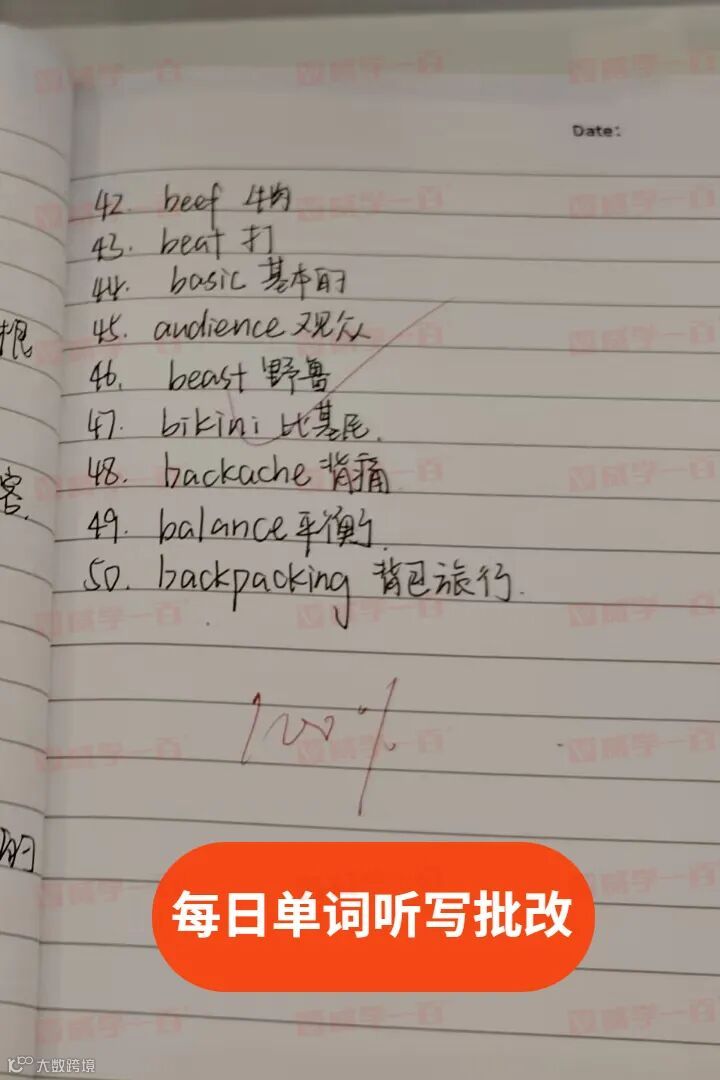 Date:
42. beef 牛肉
43. beat 打
44. basic 基本的
45. audience 观众
46. beast 野兽
47. bikini 比基尼.
48. backache 背痛
49. balance 平衡.
50. backpacking 背包旅行.
100%
客.
的
每日单词听写批改
大数跨境
威学一百